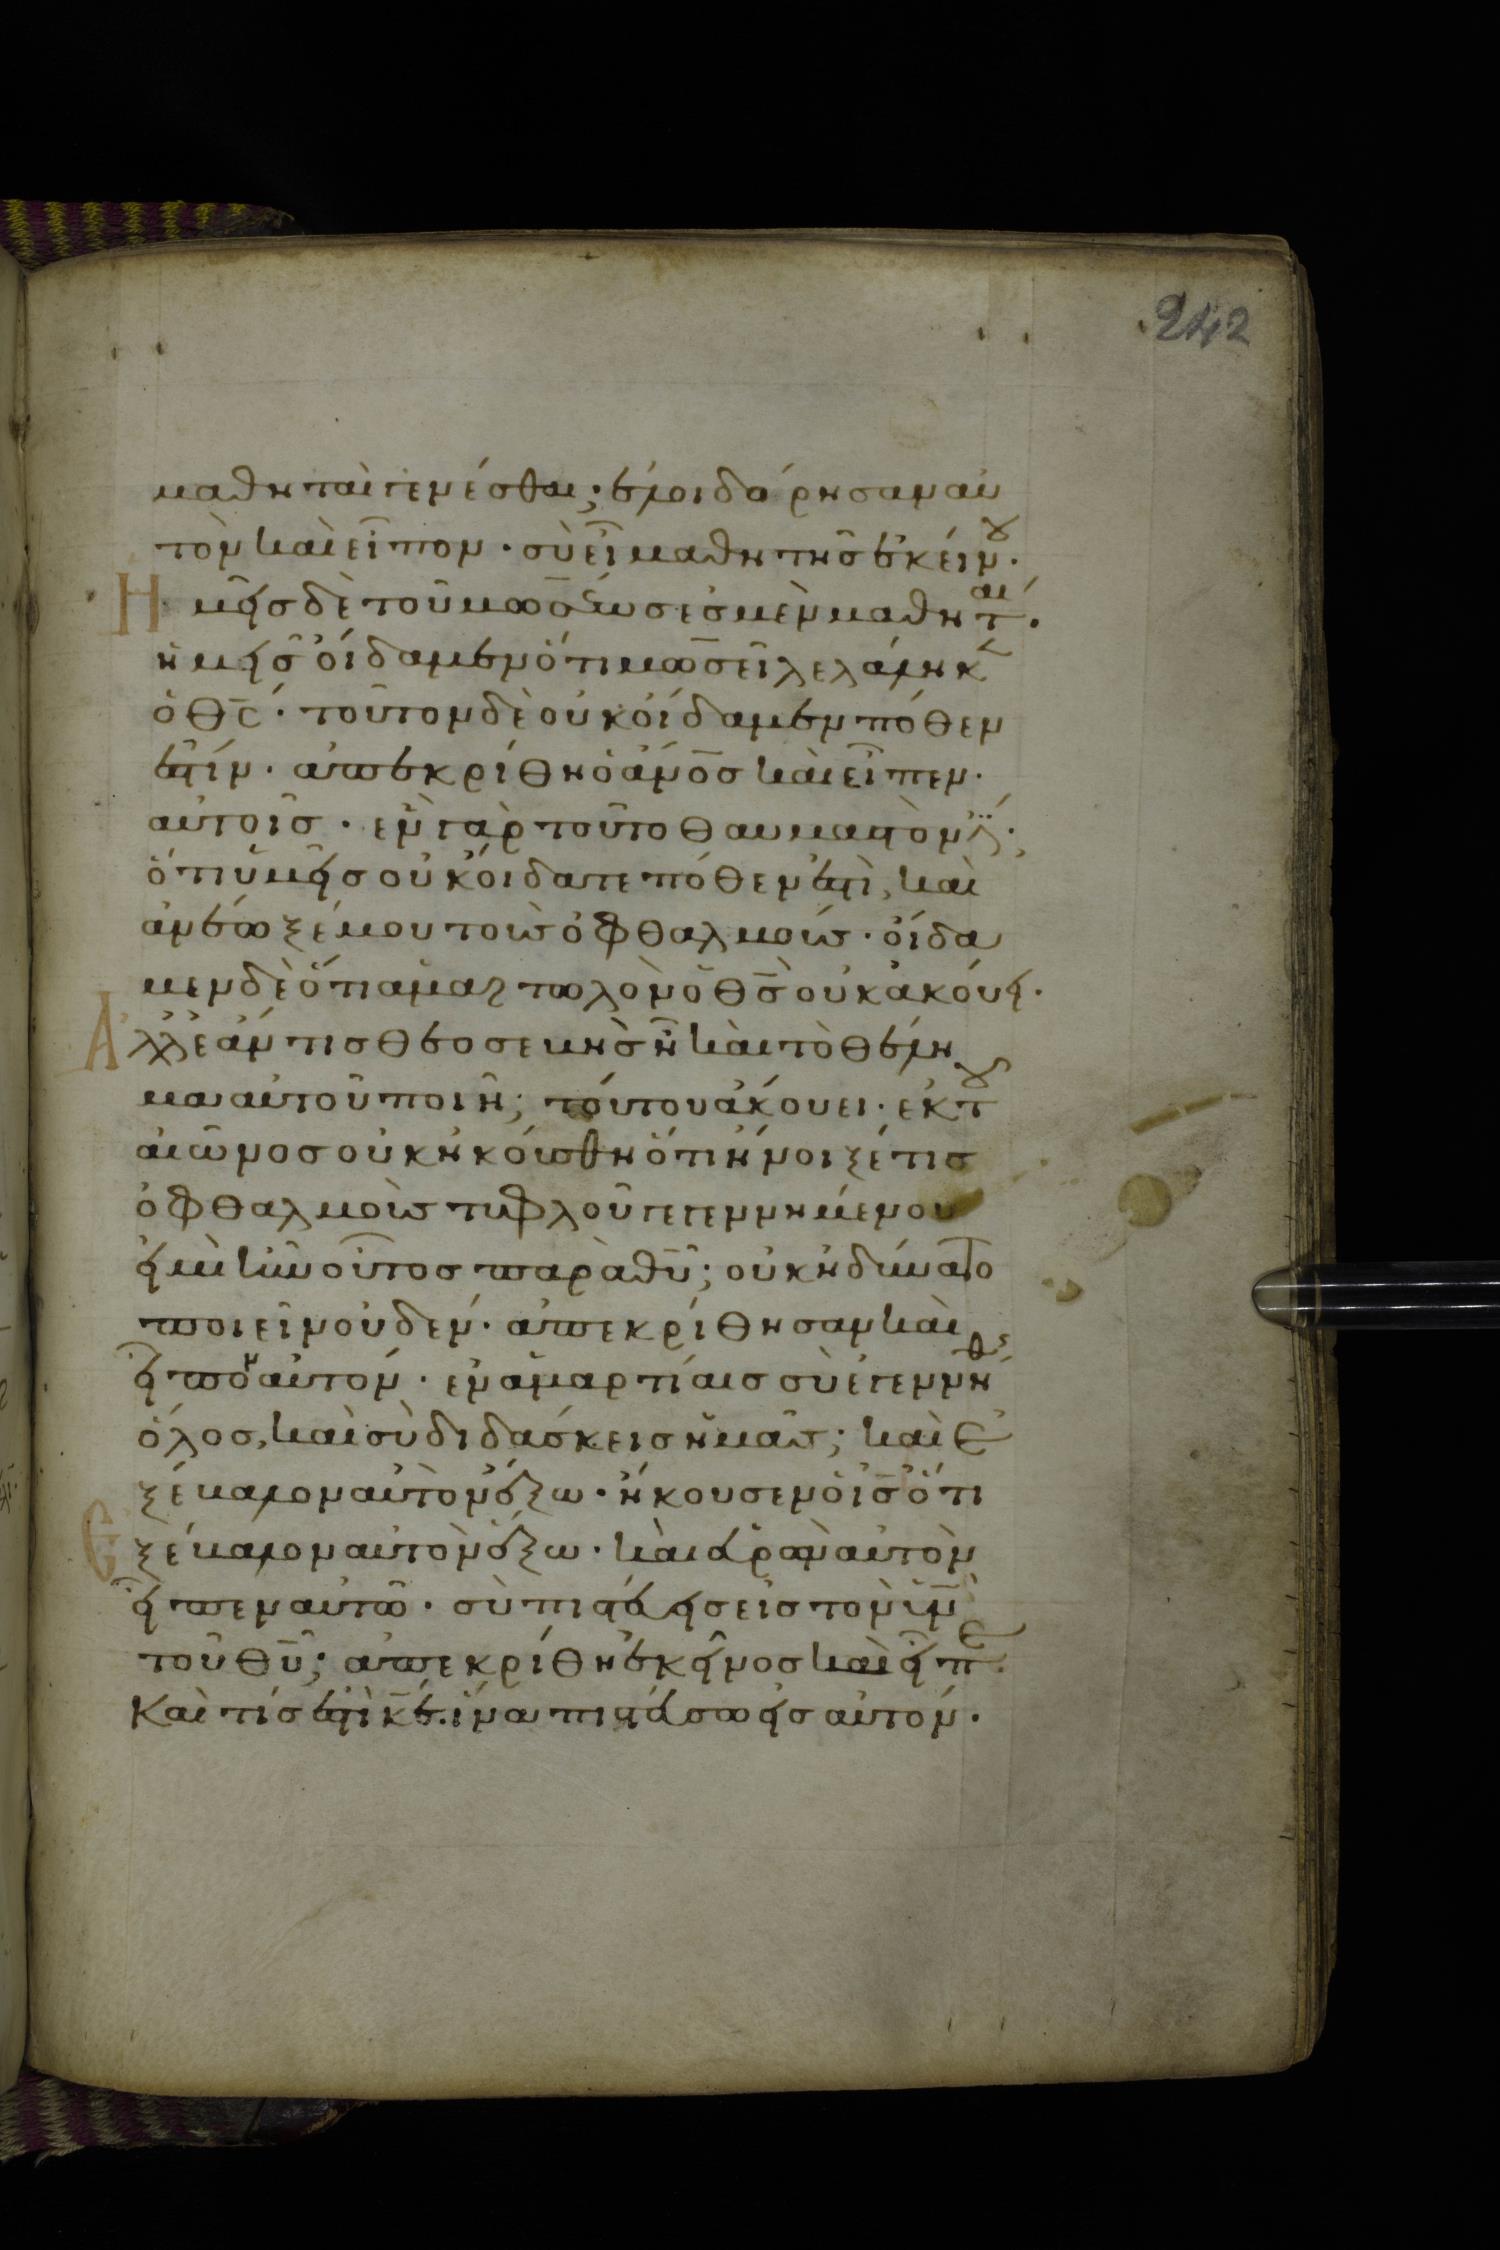 242
μαθηταὶ γενέσθαι; ἐλοιδόρησαν αὐ
τὸν καὶ εἶπον · σὺ εἶ μαθητῆς ἐκείνου ·
Ἡμεῖς δὲ τοῦ μωσέως ἐσμὲν μαθηταί ·
ἡμεῖς οἴδαμεν ὅτι μωσεῖ λελάληκεν
ὁ θς · τοῦτον δὲ οὐκ οἴδαμεν πόθεν
ἐστίν · ἀπεκρίθη ὁ ανος καὶ εἶπεν ·
αὐτοῖς · ἐν γὰρ τοῦτο θαυμαστόν ἐστιν ·
ὅτι ὑμεῖς οὐκ οἴδατε πόθεν ἐστὶ, καὶ
ἀνέωξέ μου τοὺς ὀφθαλμούς · οἴδα
μεν δὲ ὅτι ἁμαρτωλὸν ὁ θς οὐκ ἀκούει ·
Ἀλλ' ἐάν τις θεοσεβὴς ἦ καὶ τὸ θέλη
μα αὐτοῦ ποιῆ; τούτου ἀκούει · ἐκ τοῦ
αἰῶνος οὐκ ἠκούσθη ὅτι ἤνοιξέ τις
ὀφθαλμοὺς τυφλοῦ γεγεννημένου
εἰ μὴ ἦν οὗτος παρὰ θυ; οὐκ ἠδύνατο
ποιεῖν οὐδέν · ἀπεκρίθησαν καὶ
εἶπον αὐτόν · ἐν ἁμαρτίαις σὺ ἐγεννήθης
ὅλος, καὶ σὺ διδάσκεις ἡμᾶς; καὶ ἐ
ξέβαλον αὐτὸν ἔξω · ἤκουσεν ὁ ις ὅτι
Ἐξέβαλον αὐτὸν ἔξω · καὶ εὑρὼν αὐτὸν
εἶπεν αὐτῶ · σὺ πιστεύεις εἰς τὸν υν
τοῦ θυ; ἀπεκρίθη ἐκεῖνος καὶ εἶπε ·
Καὶ τίς ἐστὶ κε · ἵνα πιστεύσω εἰς αὐτόν ·